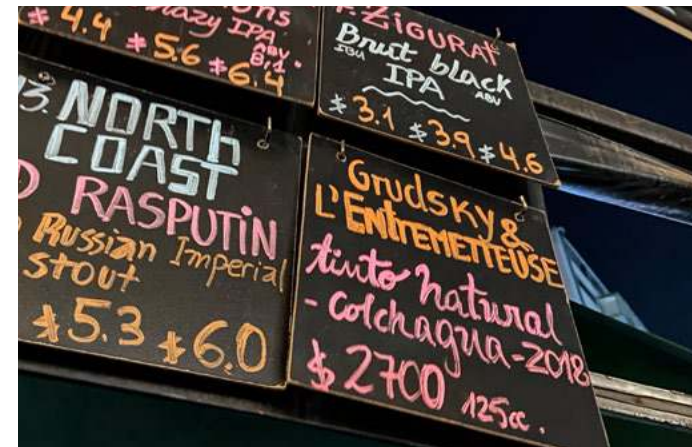 ons
razy IPA
ABV
8,1.
$ 4.4 $ 5.6 $ 6.4
ZIGURAT
Brut black
IBU IPA ABV
$ 3.1 $ 3.9 $ 4.6
13. NORTH
COAST
D RASPUTIN
Russian Imperial
Stout
$5.3 $6.0
Grudsky &
L'ENTREMETTEUSE
tinto natural
- Colchagua - 2018
$ 2700 125cc.